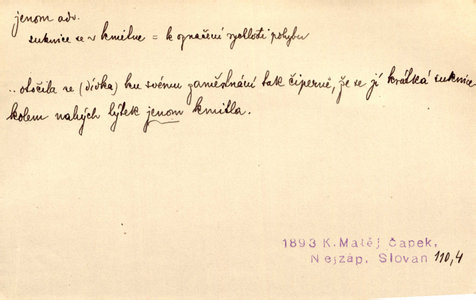 jenom adv.
suknice se v kmitne = k označení rychlosti pohybu
.. otočila se (dívka) ku svému zaměstnání tak čiperně, že se jí krátká suknice
kolem nahých lýtek jenom kmitla.
1893 K. Matěj Čapek,
Nejzáp. Slovan 110,4